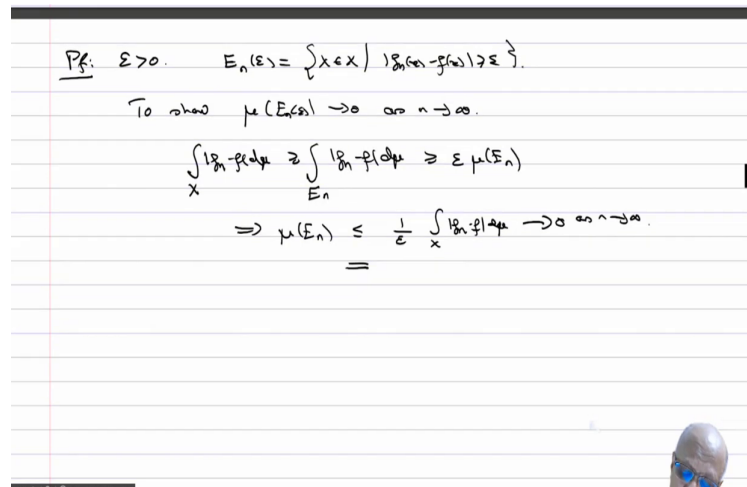 Pf: ε>0. E_n(ε) = {x∈X | |f_n(x) - f(x)| ≥ ε}.
To show μ(E_n(ε)) → 0 as n→∞.
∫_X |f_n - f| dμ ≥ ∫_{E_n} |f_n - f| dμ ≥ ε μ(E_n)
⇒ μ(E_n) ≤ 1/ε ∫_X |f_n - f| dμ → 0 as n→∞.